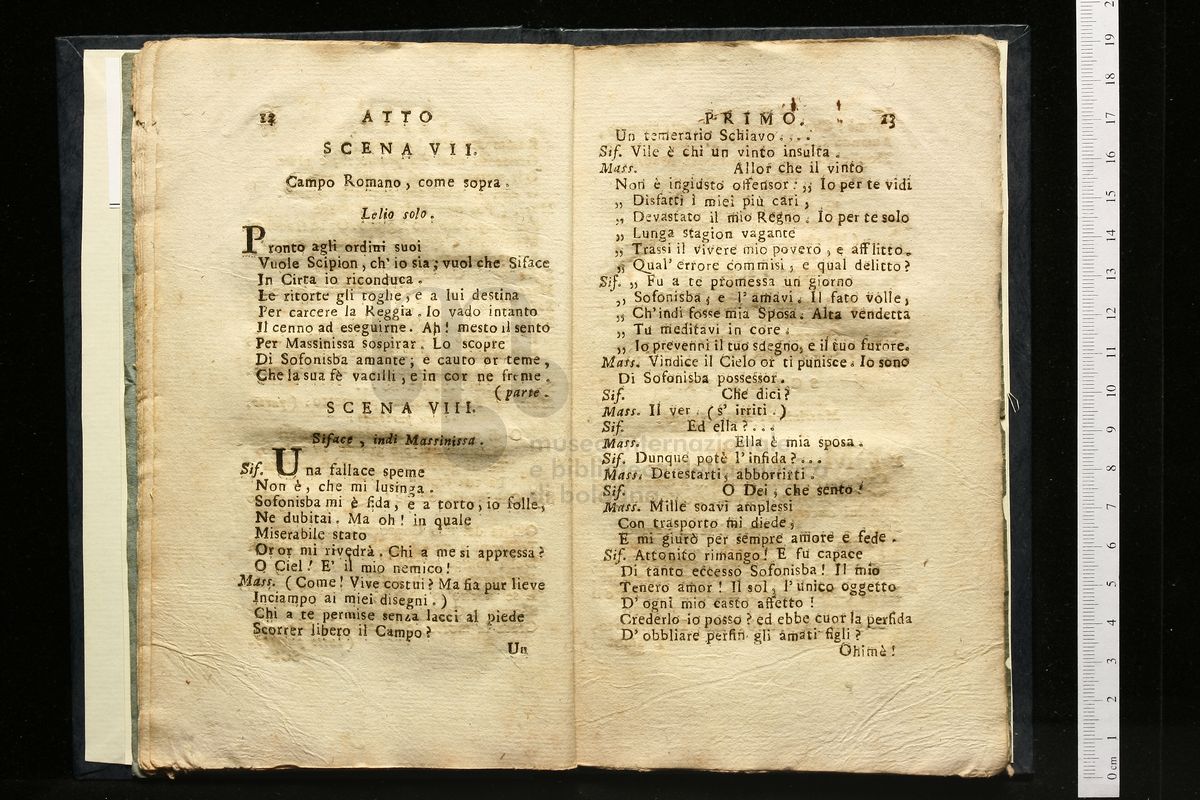 12 ATTO
SCENA VII.
Campo Romano, come sopra.
Lelio solo.
Pronto agli ordini suoi
Vuole Scipion, ch'io sia; vuol che Siface
In Cirta io riconduca.
Le ritorte gli toghe, e a lui destina
Per carcere la Reggia. Io vado intanto
Il cenno ad eseguirne. Ah! mesto il sento
Per Massinissa sospirar. Lo scopre
Di Sofonisba amante; e cauto or teme,
Che la sua fè vacilli, e in cor ne freme.
(parte.
SCENA VIII.
Siface, indi Massinissa.
Sif. Una fallace speme
Non è, che mi lusinga.
Sofonisba mi è fida, e a torto, io folle,
Ne dubitai. Ma oh! in quale
Miserabile stato
Or or mi rivedrà. Chi a me si appressa?
O Ciel! E' il mio nemico!
Mass. (Come! Vive costui? Ma fia pur lieve
Inciampo ai miei disegni.)
Chi a te permise senza lacci al piede
Scorrer libero il Campo?
Un
PRIMO. 13
Un temerario Schiavo....
Sif. Vile è chi un vinto insulta.
Mass. Allor che il vinto
Non è ingiusto offensor: „ Io per te vidi
„ Disfatti i miei più cari,
„ Devastato il mio Regno. Io per te solo
„ Lunga stagion vagante
„ Trassi il vivere mio povero, e afflitto.
„ Qual' errore commisi, e qual delitto?
Sif. „ Fu a te promessa un giorno
„ Sofonisba, e l'amavi. Il fato volle,
„ Ch'indi fosse mia Sposa. Alta vendetta
„ Tu meditavi in core.
„ Io prevenni il tuo sdegno, e il tuo furore.
Mass. Vindice il Cielo or ti punisce. Io sono
Di Sofonisba possessor.
Sif. Che dici?
Mass. Il ver. (s'irriti.)
Sif. Ed ella?...
Mass. Ella è mia sposa.
Sif. Dunque potè l'infida?...
Mass. Detestarti, abborrirti.
Sif. O Dei, che sento!
Mass. Mille soavi amplessi
Con trasporto mi diede,
E mi giurò per sempre amore e fede.
Sif. Attonito rimango! E fu capace
Di tanto eccesso Sofonisba! Il mio
Tenero amor! Il sol, l'unico oggetto
D'ogni mio casto affetto!
Crederlo io posso? ed ebbe cuor la perfida
D'obbliare perfin gli amati figli?
Ohimè!